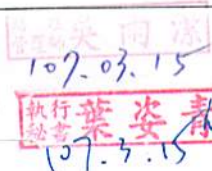 管理師 吳雨潔
107.03.15
執行秘書 葉姿青
107.3.15